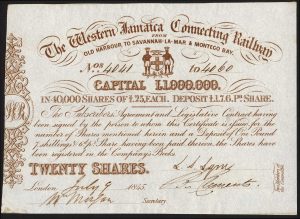 The Western Jamaica Connecting Railway
FROM
OLD HARBOUR TO SAVANNAH-LA-MAR & MONTEGO BAY.
Nos 4041 to 4060
CAPITAL £1,000,000,
IN 40,000 SHARES OF £25, EACH. DEPOSIT £1.7.6. Pr. SHARE.
The Subscribers Agreement and Legislative Contract having
been signed by the person to whom this Certificate is issued for the
number of Shares mentioned herein and a Deposit of One Pound
7 shillings & 6d Pr. Share having been paid thereon, the Shares have
been registered in the Company's Books.
TWENTY SHARES.
London, July 9 1845.
Secretary